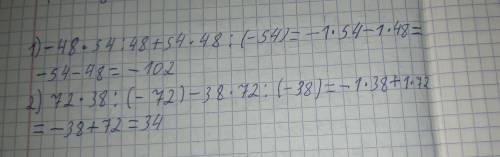 1) -48 · 54 : 48 + 54 · 48 : (-54) = -1 · 54 - 1 · 48 =
-54 - 48 = -102
2) 72 · 38 : (- 72) - 38 · 72 : (-38) = -1 · 38 + 1 · 72
= -38 + 72 = 34